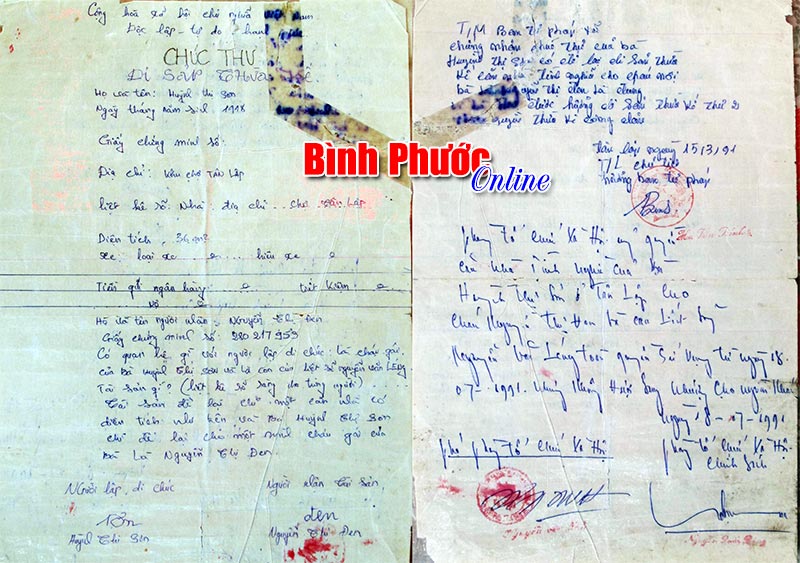 Cộng hòa xã hội chủ nghĩa Việt Nam
Độc lập - tự do - hạnh
CHÚC THƯ
DI SẢN THỪA KẾ
Họ và tên: Huỳnh Thị Sơn
Ngày tháng năm sinh 1918
Giấy chứng minh số:
Địa chỉ: Khu chợ Tân Lập
Liệt kê số: Nhà địa chỉ chợ Tân Lập
Diện tích 36 m2
Xe: loại xe hiệu xe
Tiền gửi ngân hàng tiết kiệm
Họ và tên người nhận: Nguyễn Thị Đen
Giấy chứng minh số: 280217953
Có quan hệ gì với người lập di chúc: là cháu gái
của bà Huỳnh Thị Sơn và là con của liệt sĩ Nguyễn văn Lèng
Tài sản gì? (liệt kê rõ ràng do từng người)
Tài sản để lại chỉ một căn nhà có
diện tích như trên và Bà Huỳnh Thị Sơn
chỉ để lại cho một mình cháu gái của
Bà Là Nguyễn Thị Đen.
Người lập di chúc
Người nhận tài sản
Sơn
Đen
Huỳnh Thị Sơn
Nguyễn Thị Đen
Bình Phước
Online
T/M Ban tư pháp xã
chứng nhận chúc thư của bà
Huỳnh Thị Sơn có để lại di sản thừa
kế căn nhà tình nghĩa cho cháu nội
bà là Nguyễn Thị Đen là đúng
được hưởng di sản thừa kế thứ 2
quyền thừa kế
Tân lập ngày 15/3/91
T/L chủ tịch
Trưởng ban tư pháp
Phòng tổ chức Xã Hội
căn nhà Tình Nghĩa của bà
Huỳnh Thị Sơn ở Tân Lập cho
cháu Nguyễn Thị Đen là con Liệt Sỹ
Nguyễn Văn Lèng toàn quyền sử dụng từ ngày 18-
07-1991. nhưng không được sang nhượng cho người khác
ngày 18-07-1991
Phó phòng Tổ chức Xã Hội
phòng tổ chức Xã Hội
chính sách